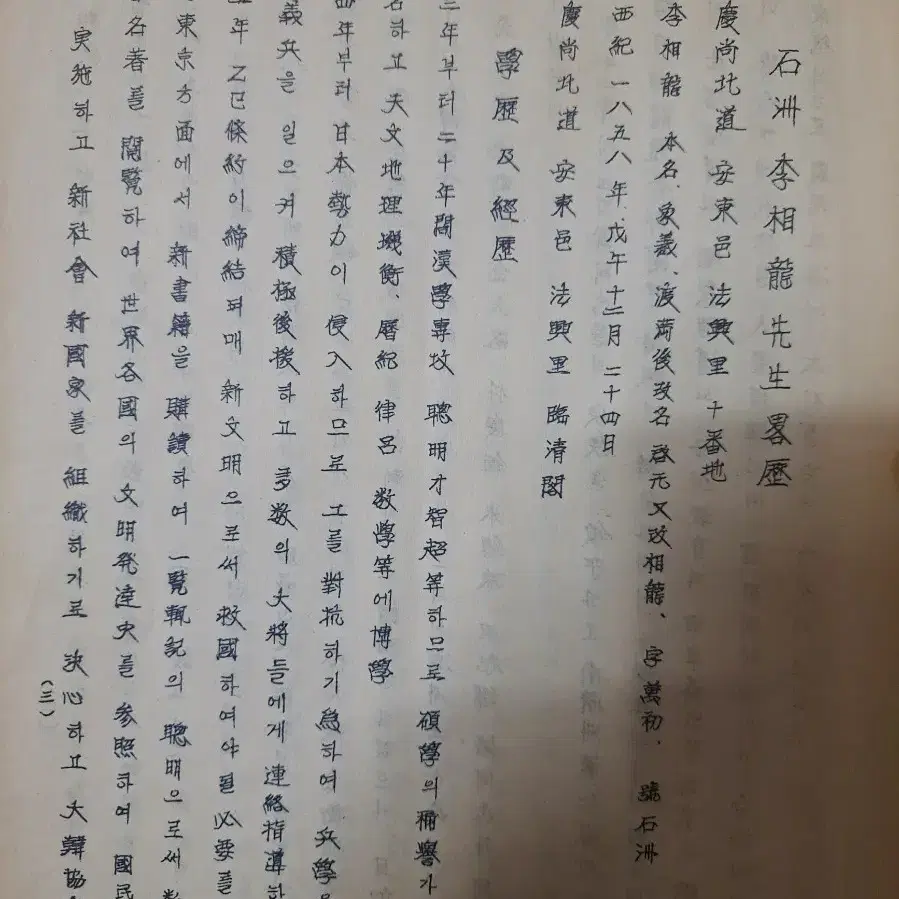 石洲 李相龍先生畧歷
慶尚北道 安東邑 法興里 十番地
李相龍 本名、象羲、渡滿後改名 啓元又改相龍、字 萬初、號石洲
西紀 一八五八年、戊午十二月 二十四日
慶尚北道 安東邑 法興里 臨清閣
學歷及經歷
年부터 二十年間漢學專攻 聰明才智超等하므로 碩學의 稱譽가
하고 天文地理璣衡、曆紀 律呂 数學等에 博學
年부터 日本勢力이 侵入하므로 그를 對抗하기 爲하여 兵學을
義兵을 일으켜 積極後援하고 多数의 大將들에게 連絡指導하
年 乙巳條約이 締結되매 新文明으로써 救國하여야 될 必要를
東京方面에서 新書籍을 購讀하여 一覽輒記의 聰明으로써
名著를 閱覽하여 世界各國의 文明発達史를 参照하여 國民
実施하고 新社會 新國家를 組織하기로 决心하고 大韓協
(三)